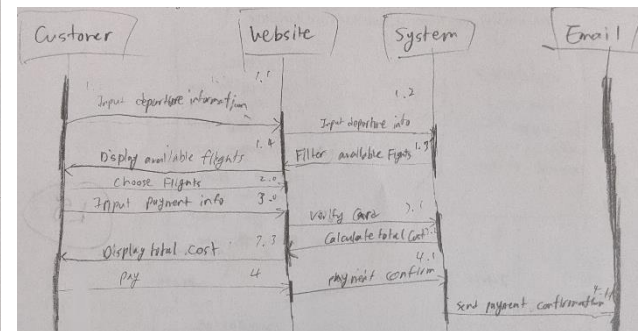 Customer
Website
System
Email
1.1
Input departure information
1.2
Input departure info
1.4
Display available flights
1.3
Filter available Flights
Choose Flights
2.0
Input payment info
3.0
Verify Card
3.1
Calculate total Cost
Display total cost
3.3
4.1
Pay
4
payment confirm
send payment confirmation